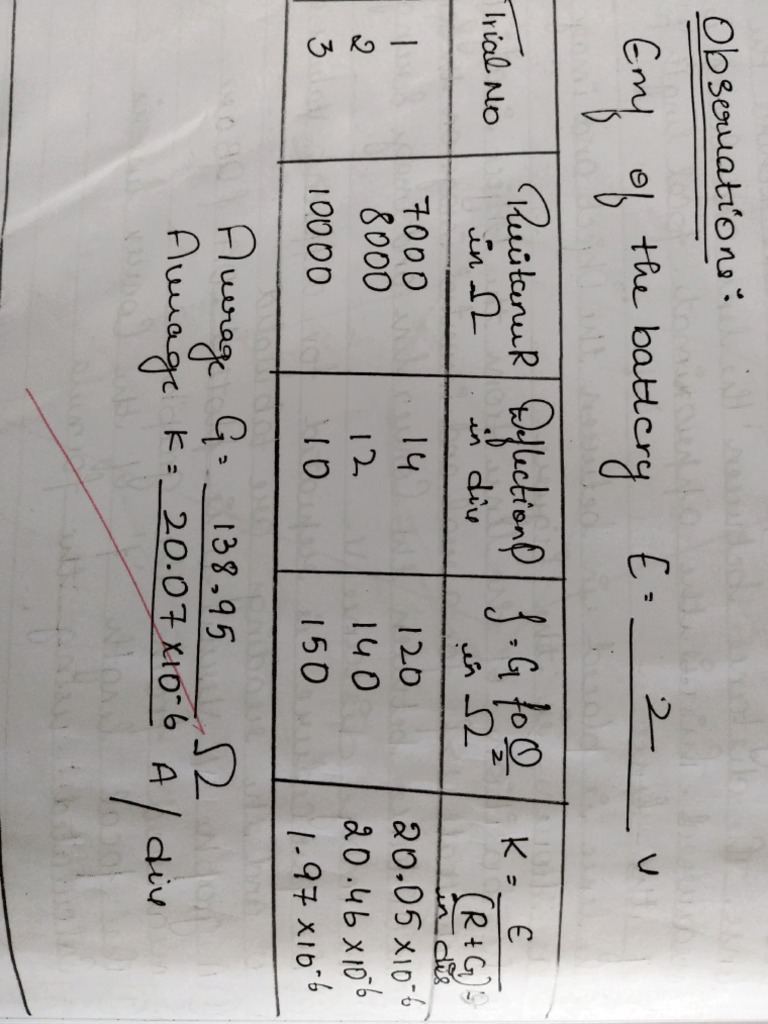 Observations:
Emf of the battery E = 2 V
Trial No
Resistance R in Ω
Deflection θ in div
S = G for θ/2 in Ω
K = E / (R+G) θ
1 7000 14 120 20.05 x 10-6
2 8000 12 140 20.46 x 10-6
3 10000 10 150 1.97 x 10-6
Average G = 138.95 Ω
Average K = 20.07 x 10-6 A / div